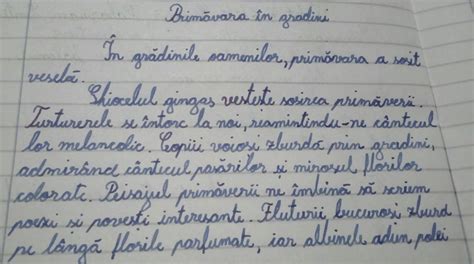 Primăvara în gradini
În grădinile oamenilor, primăvara a sosit
veselă.
Ghiocelul gingaș vestește sosirea primăverii.
Turturerele se întorc la noi, reamintindu-ne cântecul
lor melancolic. Copiii voioși zburdă prin gradini,
admirând cântecul pasărilor și mirosul florilor
colorate. Peisajul primăverii ne îmbină să scriem
poezi si povesti interesante. Fluturii bucurosi zburd
pe lângă florile parfumate, iar albinele adun polei